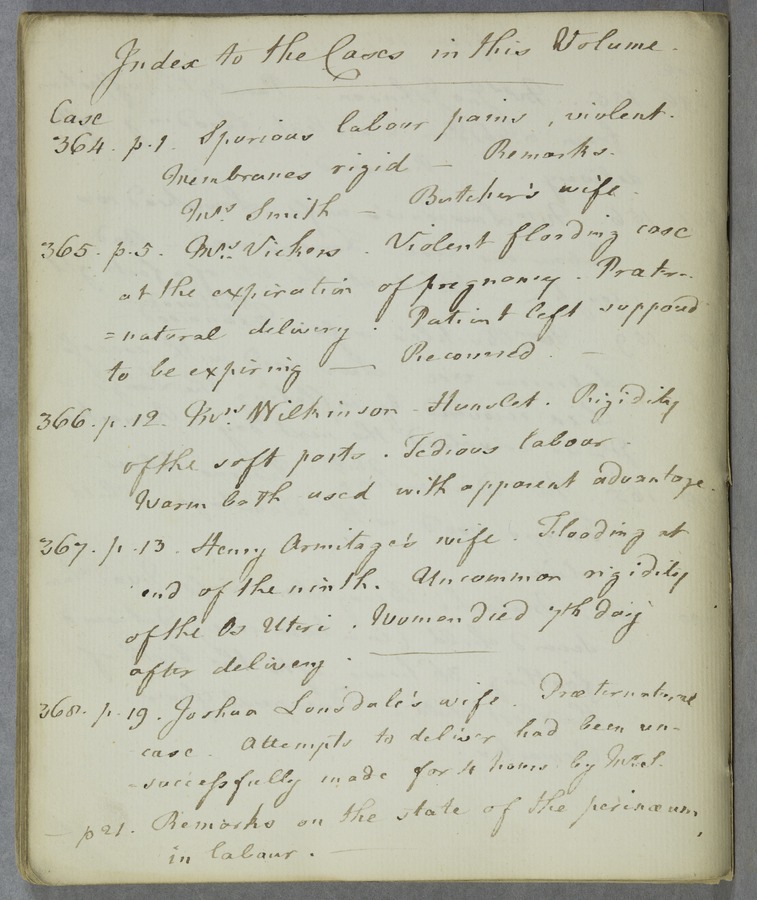 Index to the Cases in this Volume.
Case
364. p. 1. Spurious labour pains, violent.
Membranes rigid — Remarks.
Mrs Smith — Butcher's wife.
365. p. 5. Mrs. Vickers. Violent flooding case
at the expiration of pregnancy. Præter-
=natural delivery. Patient left supposed
to be expiring — Recovered. —
366. p. 12. Mrs. Wilkinson - Hunslet. Rigidity
of the soft parts. Tedious labour.
Warm bath used with apparent advantage.
367. p. 13. Henry Armitage's wife. Flooding at
end of the ninth. Uncommon rigidity
of the Os Uteri. Woman died 7th day
after delivery.
368. p. 19. Joshua Lonsdale's wife. Præternatural
case. Attempts to deliver had been un-
-successfully made for 4 hours by Mr. S.
— p 21. Remarks on the state of the perinæum,
in labour. —